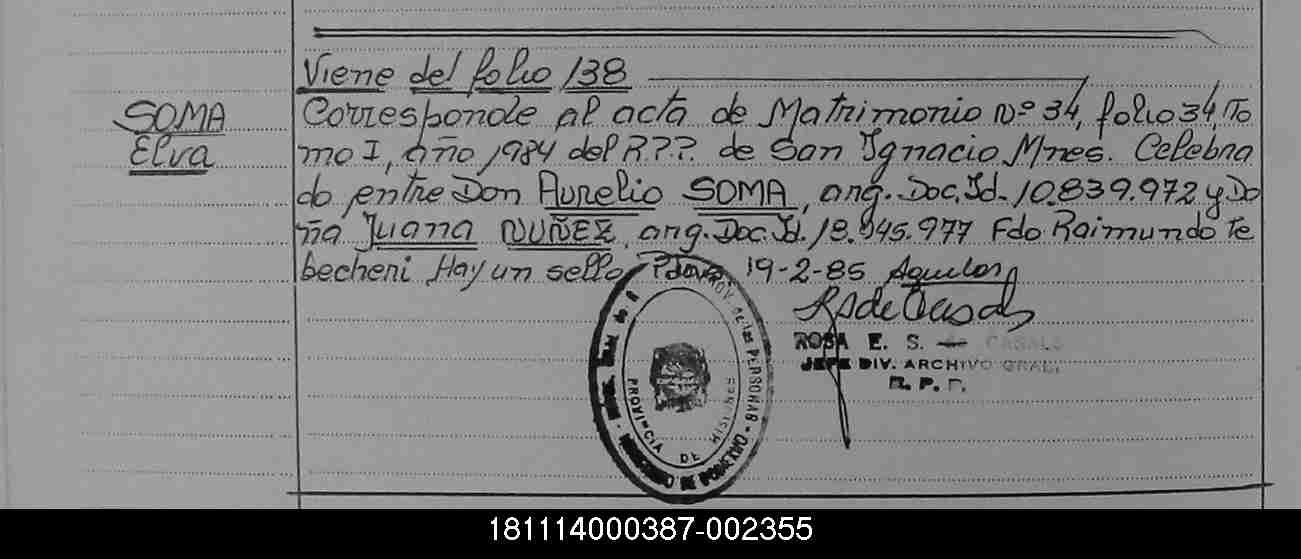 Viene del folio 138
SOMA
Elva
Corresponde al acta de Matrimonio Nº 34, folio 34, To
mo I, año 1984 del R.P.P. de San Ignacio Mnes. Celebra
do entre Don Aurelio SOMA, arg. Doc. Id. 10.839.972 y Do
ña Juana NUÑEZ, arg. Doc. Id. 18.945.977 Fdo Raimundo Te
becheni Hay un sello Pdas 19-2-85 Aguilar
ROSA E. S. de CASALS
JEFE DIV. ARCHIVO GRAL.
R. P. P.
PROV. de las PERSONAS
MINISTERIO DE GOBIERNO
PROVINCIA DE MISIONES
181114000387-002355